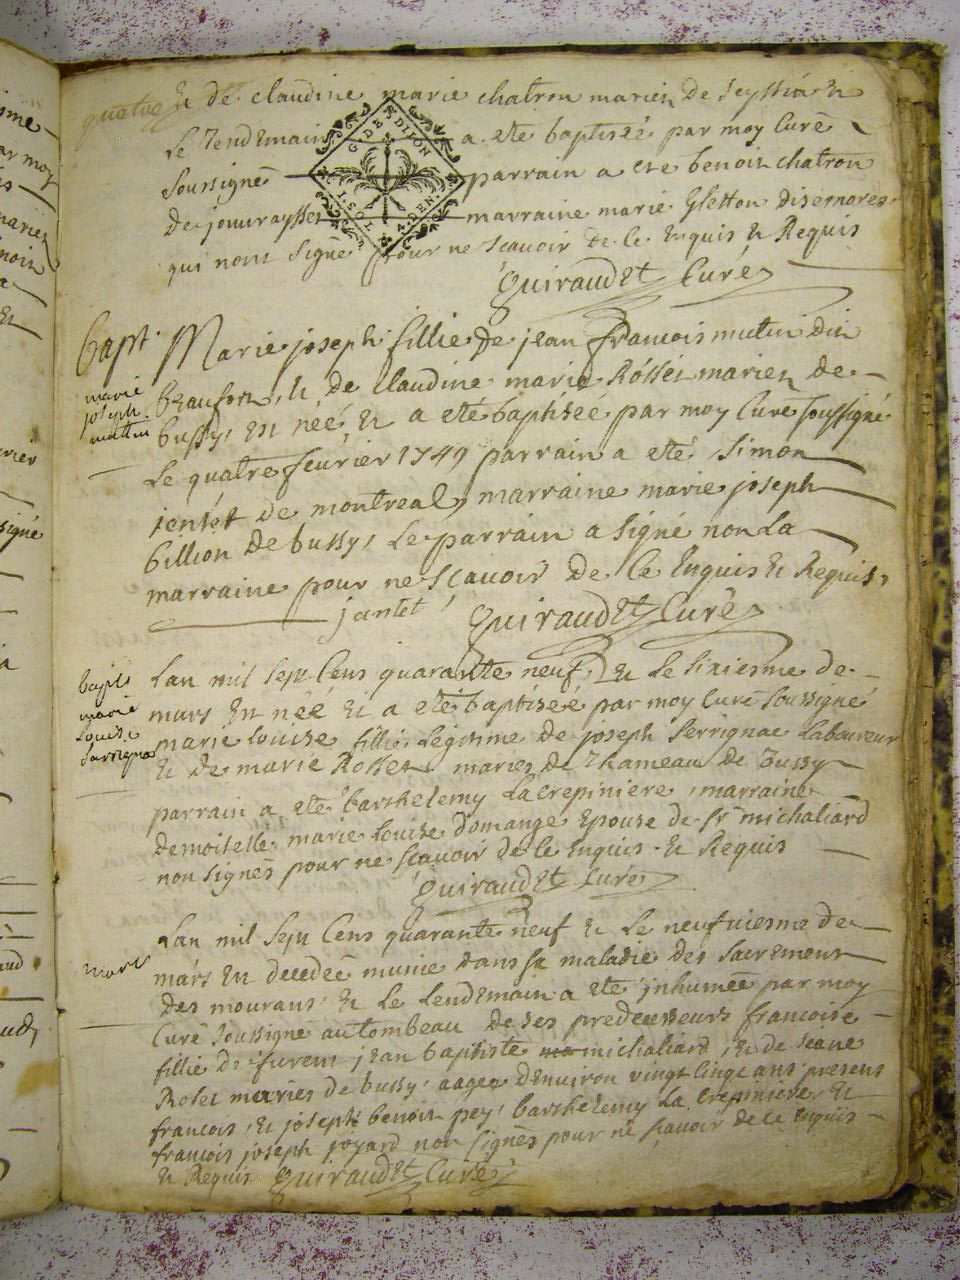 quatre
et de claudine marie chatron mariez de seyssia et
Le Lendemain a ete baptiseé par moy Curé
G. DE DIJON
soussigné parrain a ete benoit chatron
1. SOL 4. DEN.
de jouvraysset marraine marie Gletton disernores
qui nont signé pour ne scavoir de ce Enquis et Requis
Guiraudet Curé
bapt. Marie joseph fillie de jean francois mutin dit
marie
joseph
mutin
beaufort, et de claudine marie Rosset mariez de
bussy, est neé et a eté baptiseé par moy Curé soussigné
Le quatre fevrier 1749 parrain a eté simon
jentet de montreal, marraine marie joseph
billion de bussy, Le parrain a signé non La
marraine pour ne scavoir de ce Enquis et Requis,
jantet Guiraudet Curé
Lan mil sept Cens quarante neuf, et Le sixiesme de
bapt
marie
Louise
Sarrignac
mars est neé et a eté baptiseé par moy Curé soussigné
marie Louise fillie Legitime de joseph Serrignac Laboureur
et de marie Rosset mariez de Lhameau de bussy
parrain a eté barthelemy Lacrepiniere, marraine
demoiselle marie Louise domange Epouse de sr michaliard
non signés pour ne scavoir de ce Enquis et Requis
Guiraudet Curé
Lan mil sept Cens quarante neuf et Le neufviesme de
mort
mars est decedeé munie dans sa maladie des sacremens
des mourans, et Le Lendemain a eté inhumeé par moy
Curé soussigné au tombeau de ses predecesseurs francoise
fillie de furent jean baptiste michaliard, et de
Rolet mariés de bussy, aageé denviron vingt cinq ans presens
francois, et joseph benoit pey, barthelemy La Crepiniere, et
francois joseph joyard non signés pour ne scavoir de ce enquis
et Requis Guiraudet Curé